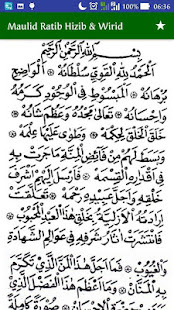 06:36
Maulid Ratib Hizib & Wirid
بِسْمِ اللهِ الرَّحْمٰنِ الرَّحِيْمِ
اَلْحَمْدُ لِلّٰهِ الْقَوِيِّ سُلْطَانُهُ ۞ اَلْوَاضِحِ
بُرْهَانُهُ ۞ اَلْمَبْسُوْطِ فِى الْوُجُوْدِ كَرَمُهُ
وَاِحْسَانُهُ ۞ تَعَالَى مَجْدُهُ وَعَظُمَ شَانُهُ ۞
خَلَقَ الْخَلْقَ لِحِكْمَةٍ ۞ وَطَوَى عَلَيْهَا عِلْمَهُ ۞
وَبَسَطَ لَهُمْ مِنْ فَائِضِ الْمِنَّةِ مَاجَرَتْ بِهِ
فِى اَقْدَارِهِ الْقِسْمَةُ ۞ فَاَرْسَلَ اِلَيْهِمْ اَشْرَفَ
خَلْقِهِ وَاَجَلَّ عَبِيْدِهِ رَحْمَةً ۞ تَعَلَّقَتْ
اِرَادَتُهُ الْاَزَلِيَّةُ بِخَلْقِ هٰذَا الْعَبْدِ الْمَحْبُوْبِ ۞
فَانْتَشَرَتْ اٰثَارُ شَرَفِهِ فِى عَوَالِمِ الشَّهَادَةِ
وَالْغُيُوْبِ ۞ فَمَا اَجَلَّ هٰذَا الْمَنَّ الَّذِيْ تَكَرَّمَ بِهِ
الْمَنَّانُ ۞ وَمَا اَعْظَمَ هٰذَا الْفَضْلَ الَّذِيْ
بَرَزَ مِنْ حَضْرَةِ الْاِحْسَانِ ۞ صُوْرَةً كَامِلَةً